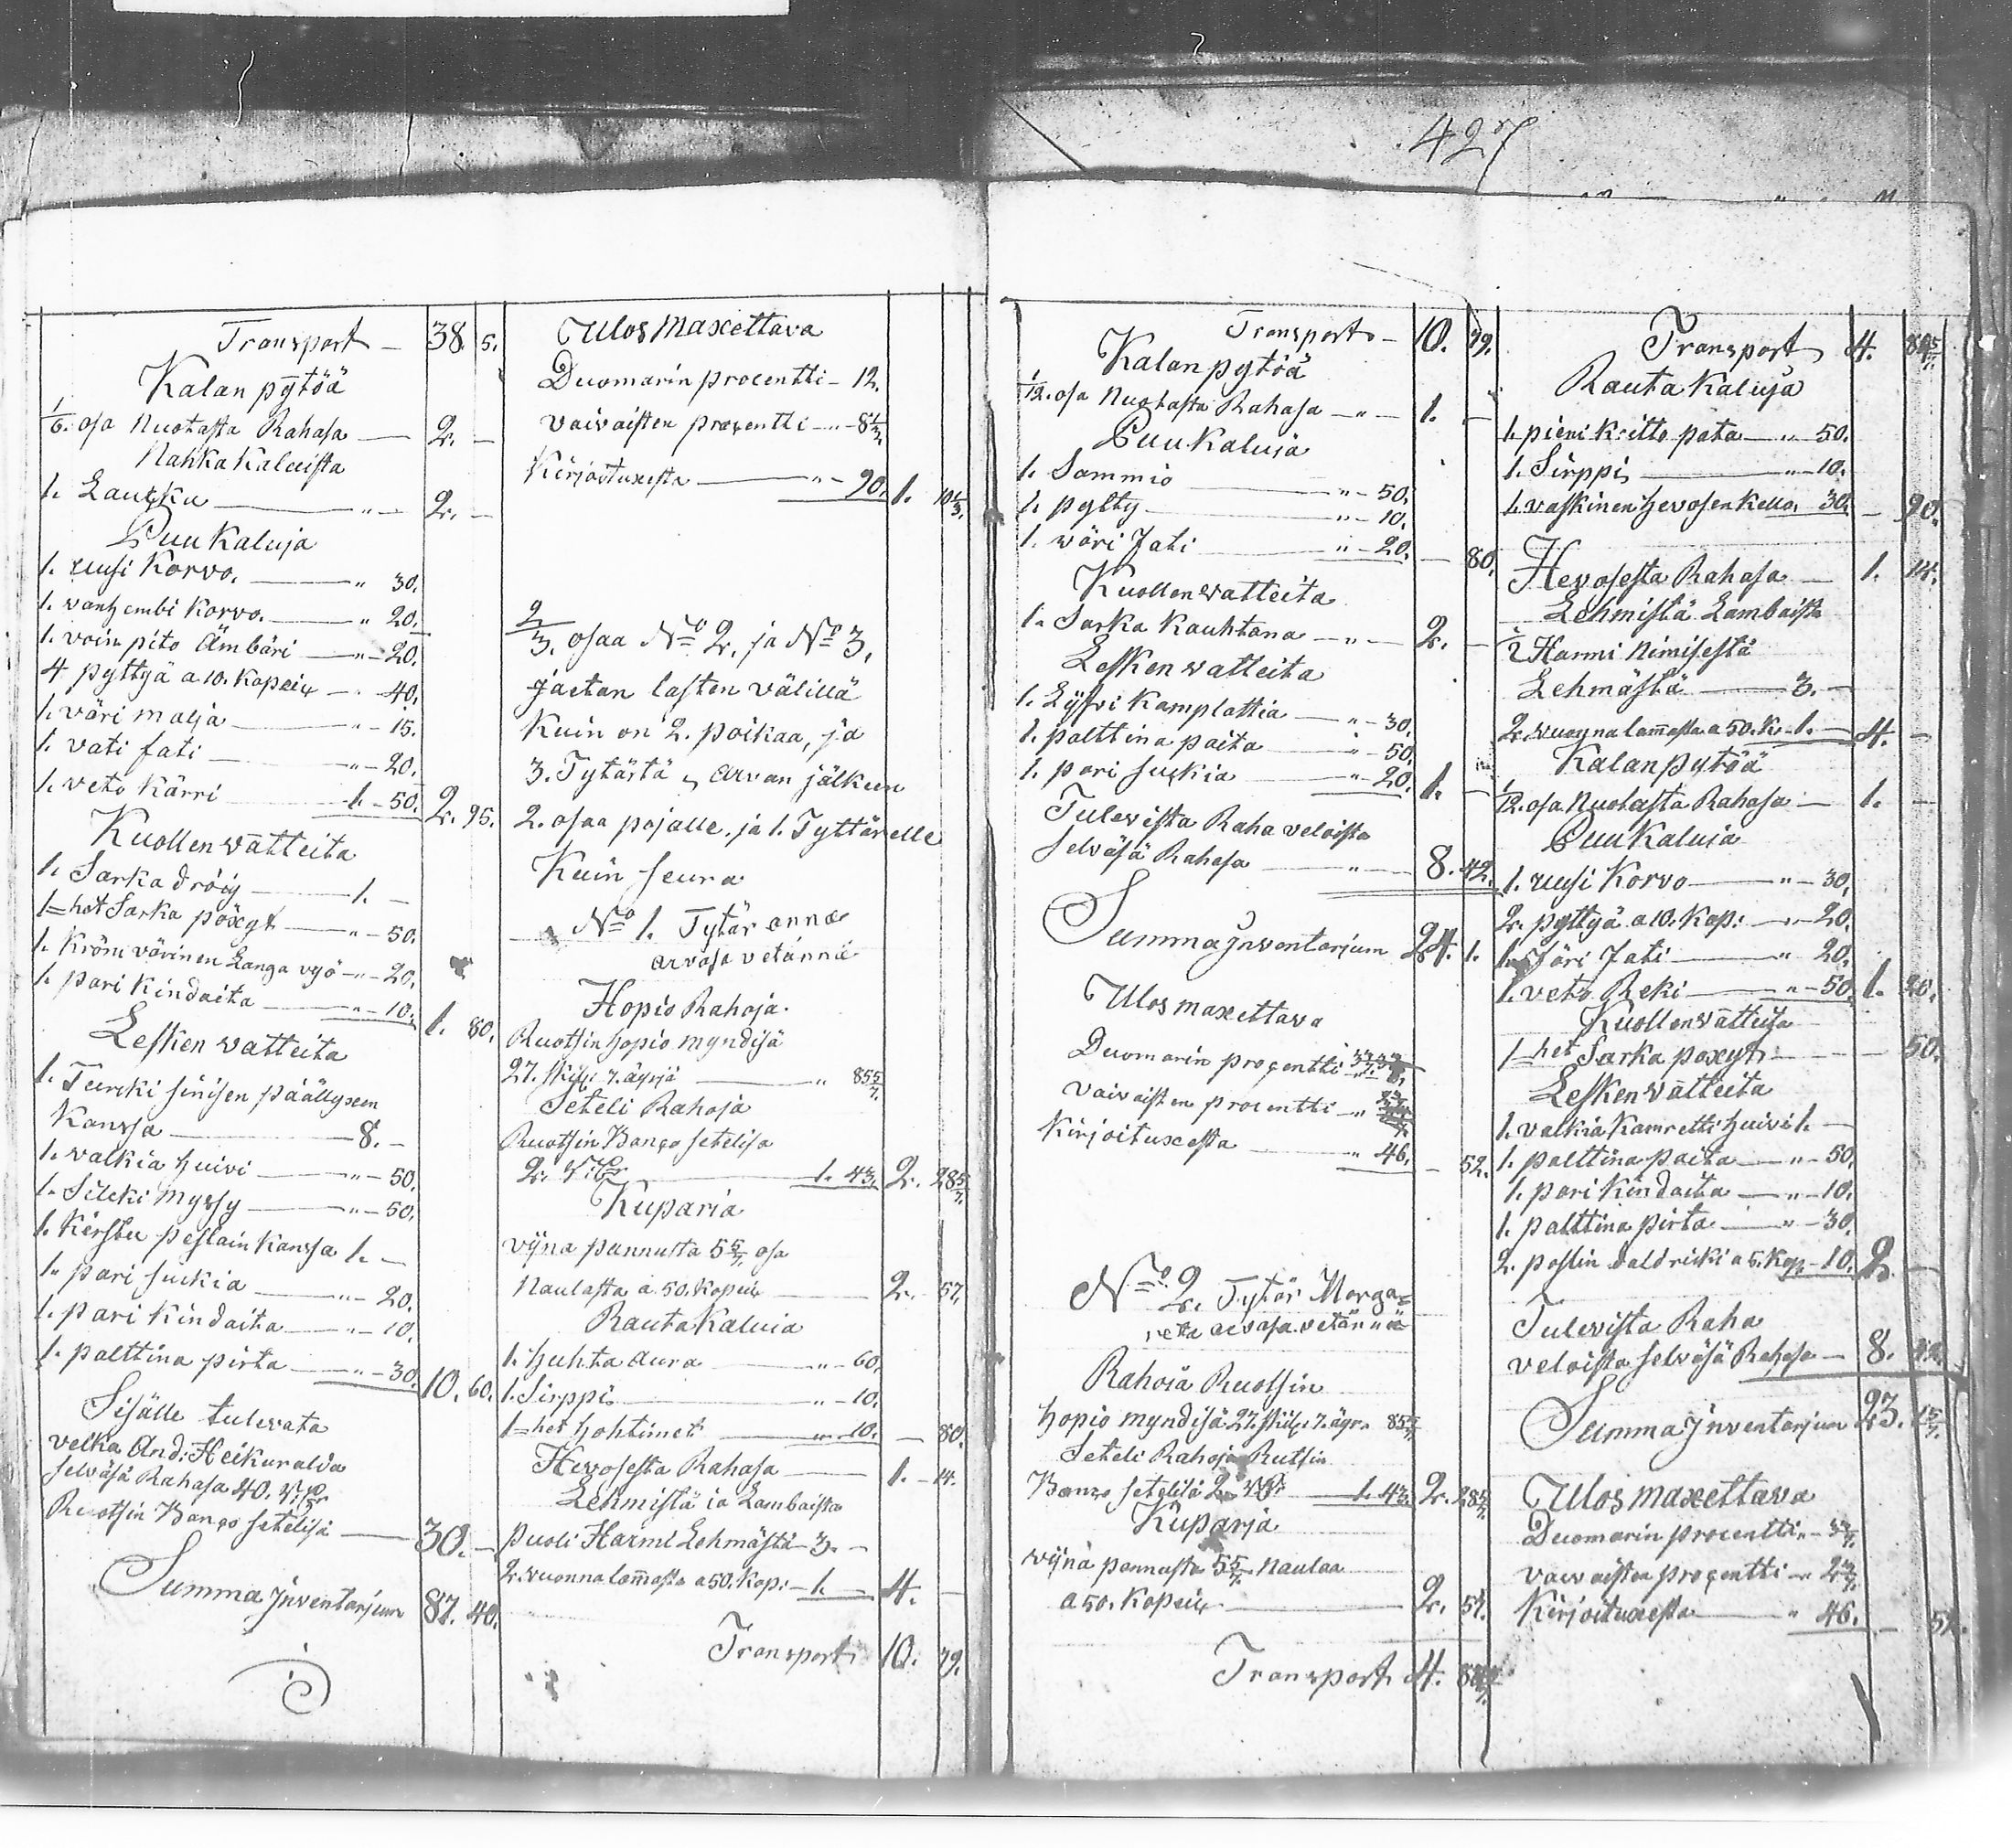 427
Transport — 38. 5.
Kalan pytöä
1/6. osa Nuotasta Rahasa — 2. —
Nahka Kaluista
1. Laukku — " — 2. —
Puu Kaluja
1. uusi Korvo. — " 30.
1. vanhembi Korvo. — " 20.
1. voin pito Ämbäri — " — 20.
4 pyttyä a 10. Kopeix — " 40.
1. väri malja — " — 15.
1. vati fati — " — 20.
1. veto Kärri — 1. — 50. 2. 95.
Kuollen vatteita
1. Sarka dröiy — 1. —
1=het Sarka pöxyt — " — 50.
1. Kröni värinen Langa vyö — " — 20.
1. pari Kindaita — " — 10. 1. 80.
Lesken vatteita
1. Turcki sinisen päällyxen
Kanssa — 8. —
1. valkia huivi — " — 50.
1. Silcki myssy — " — 50.
1. Kirstu peslain Kanssa 1. —
1. pari sukia — " — 20.
1. pari Kindaita — " — 10.
1. palttina pirta — " — 30. 10. 60.
Sisälle tulevata
velka And: Heikuralda
selväsä Rahasa 40.
Ruotsin Banço setelisä — 30. —
Summa Inventarjum 87. 40.
Ulos maxettava
Duomarin procentti — 12.
vaivaisten procentti — " — 8 1/3.
Kirjoituxesta — " — 90. 1. 10 1/3.
2/3. osaa No 2. ja No 3.
jaetan lasten välillä
Kuin on 2. poikaa, ja
3. Tytärtä, arvan jälkeen
2. osaa pojalle, ja 1. Tyttärelle
Kuin seura
No 1. Tytär anna
arvasa vetännä
Hopio Rahoja.
Ruotsin hopio myndisä
27. skil: 7. äyriä — " 85 5/7.
Seteli Rahoja
Ruotsin Banço setelisä
2. — 1. 43. 2. 28 5/7.
Kuparia
vijna pannusta 5 5/7. osa
Naulasta a 50. Kopeix — 2. 57.
Rauta Kaluia
1. huhta aura — " — 60.
1. Sirppi — " — 10.
1=het hohtimet — " — 10. — 80.
Hevosesta Rahasa — 1. — 14.
Lehmistä ia Lambaista
puoli Harmi Lehmästä — 3. —
2. vuonna lam̄asta a 50. Kop: — 1. — 4. —
Transport 10. 79.
Transport — 10. 79.
Kalan pytöä
1/12. osa Nuotasta Rahasa — " — 1. —
Puu Kaluia
1. Sammio — " — 50.
1. pytty — " — 10.
1. wäri fati — " — 20. — 80.
Kuollen vatteita
1. Sarka Kauhtana — " — 2. —
Lesken vatteita
1. Lijsvi Kamplottia — " — 30.
1. palttina paita — " — 50.
1. pari sukia — " — 20. 1. —
Tulevista Raha veloista
selväsä Rahasa — " — 8. 42.
Summa Inventarjum 24. 1.
Ulos maxettava
Duomarin procentti
Vaivaisten procentti — "
Kirjoituxesta — " 46. — 52.
No 2. Tytär Marga=
reta arvasa vetännä
Rahoia Ruotsin
hopio myndisä 27. skil: 7. äyr. 85 5/7.
Seteli Rahoja Rutsin
Banço setelisä 2. — 1. 43. 2. 28 5/7.
Kuparja
vijna pannusta 5 5/7. Naulaa
a 50. Kopeix — 2. 57.
Transport 4.
Transport 4. 85 5/7.
Rauta Kaluja
1. pieni Keitto pata — " 50.
1. Sirppi — " — 10.
1. vaskinen hevosen Kello. 30. — 90.
Hevosesta Rahasa — 1. 14.
Lehmistä Lambaista
1/2 Harmi Nimisestä
Lehmästä — 3. —
2. vuonna lam̄asta a 50. K. — 1. — 4. —
Kalan pytöä
1/12. osa Nuotasta Rahasa — 1. —
Puu Kaluia
1. uusi Korvo — " — 30.
2. pyttyä a 10. Kop: — " — 20.
1. Väri fati — " 20.
1. veto Reki — " — 50. 1. 20.
Kuollen vatteita
1=het Sarka poxyt — — 50.
Lesken vatteita
1. valkia Kamretti huivi 1. —
1. palttina paita — " — 50.
1. pari Kindaita — " — 10.
1. palttina pirta — " — 30.
2. poslin daldricki a 5. Kop. — 10. 2. —
Tulevista Raha
veloista selväsä Rahasa — 8. 42.
Summa Inventarjum 23. 1 5/7.
Ulos maxettava
Duomarin procentti " —
vaivaisten procentti — "
Kirjoituxesta — " 46.